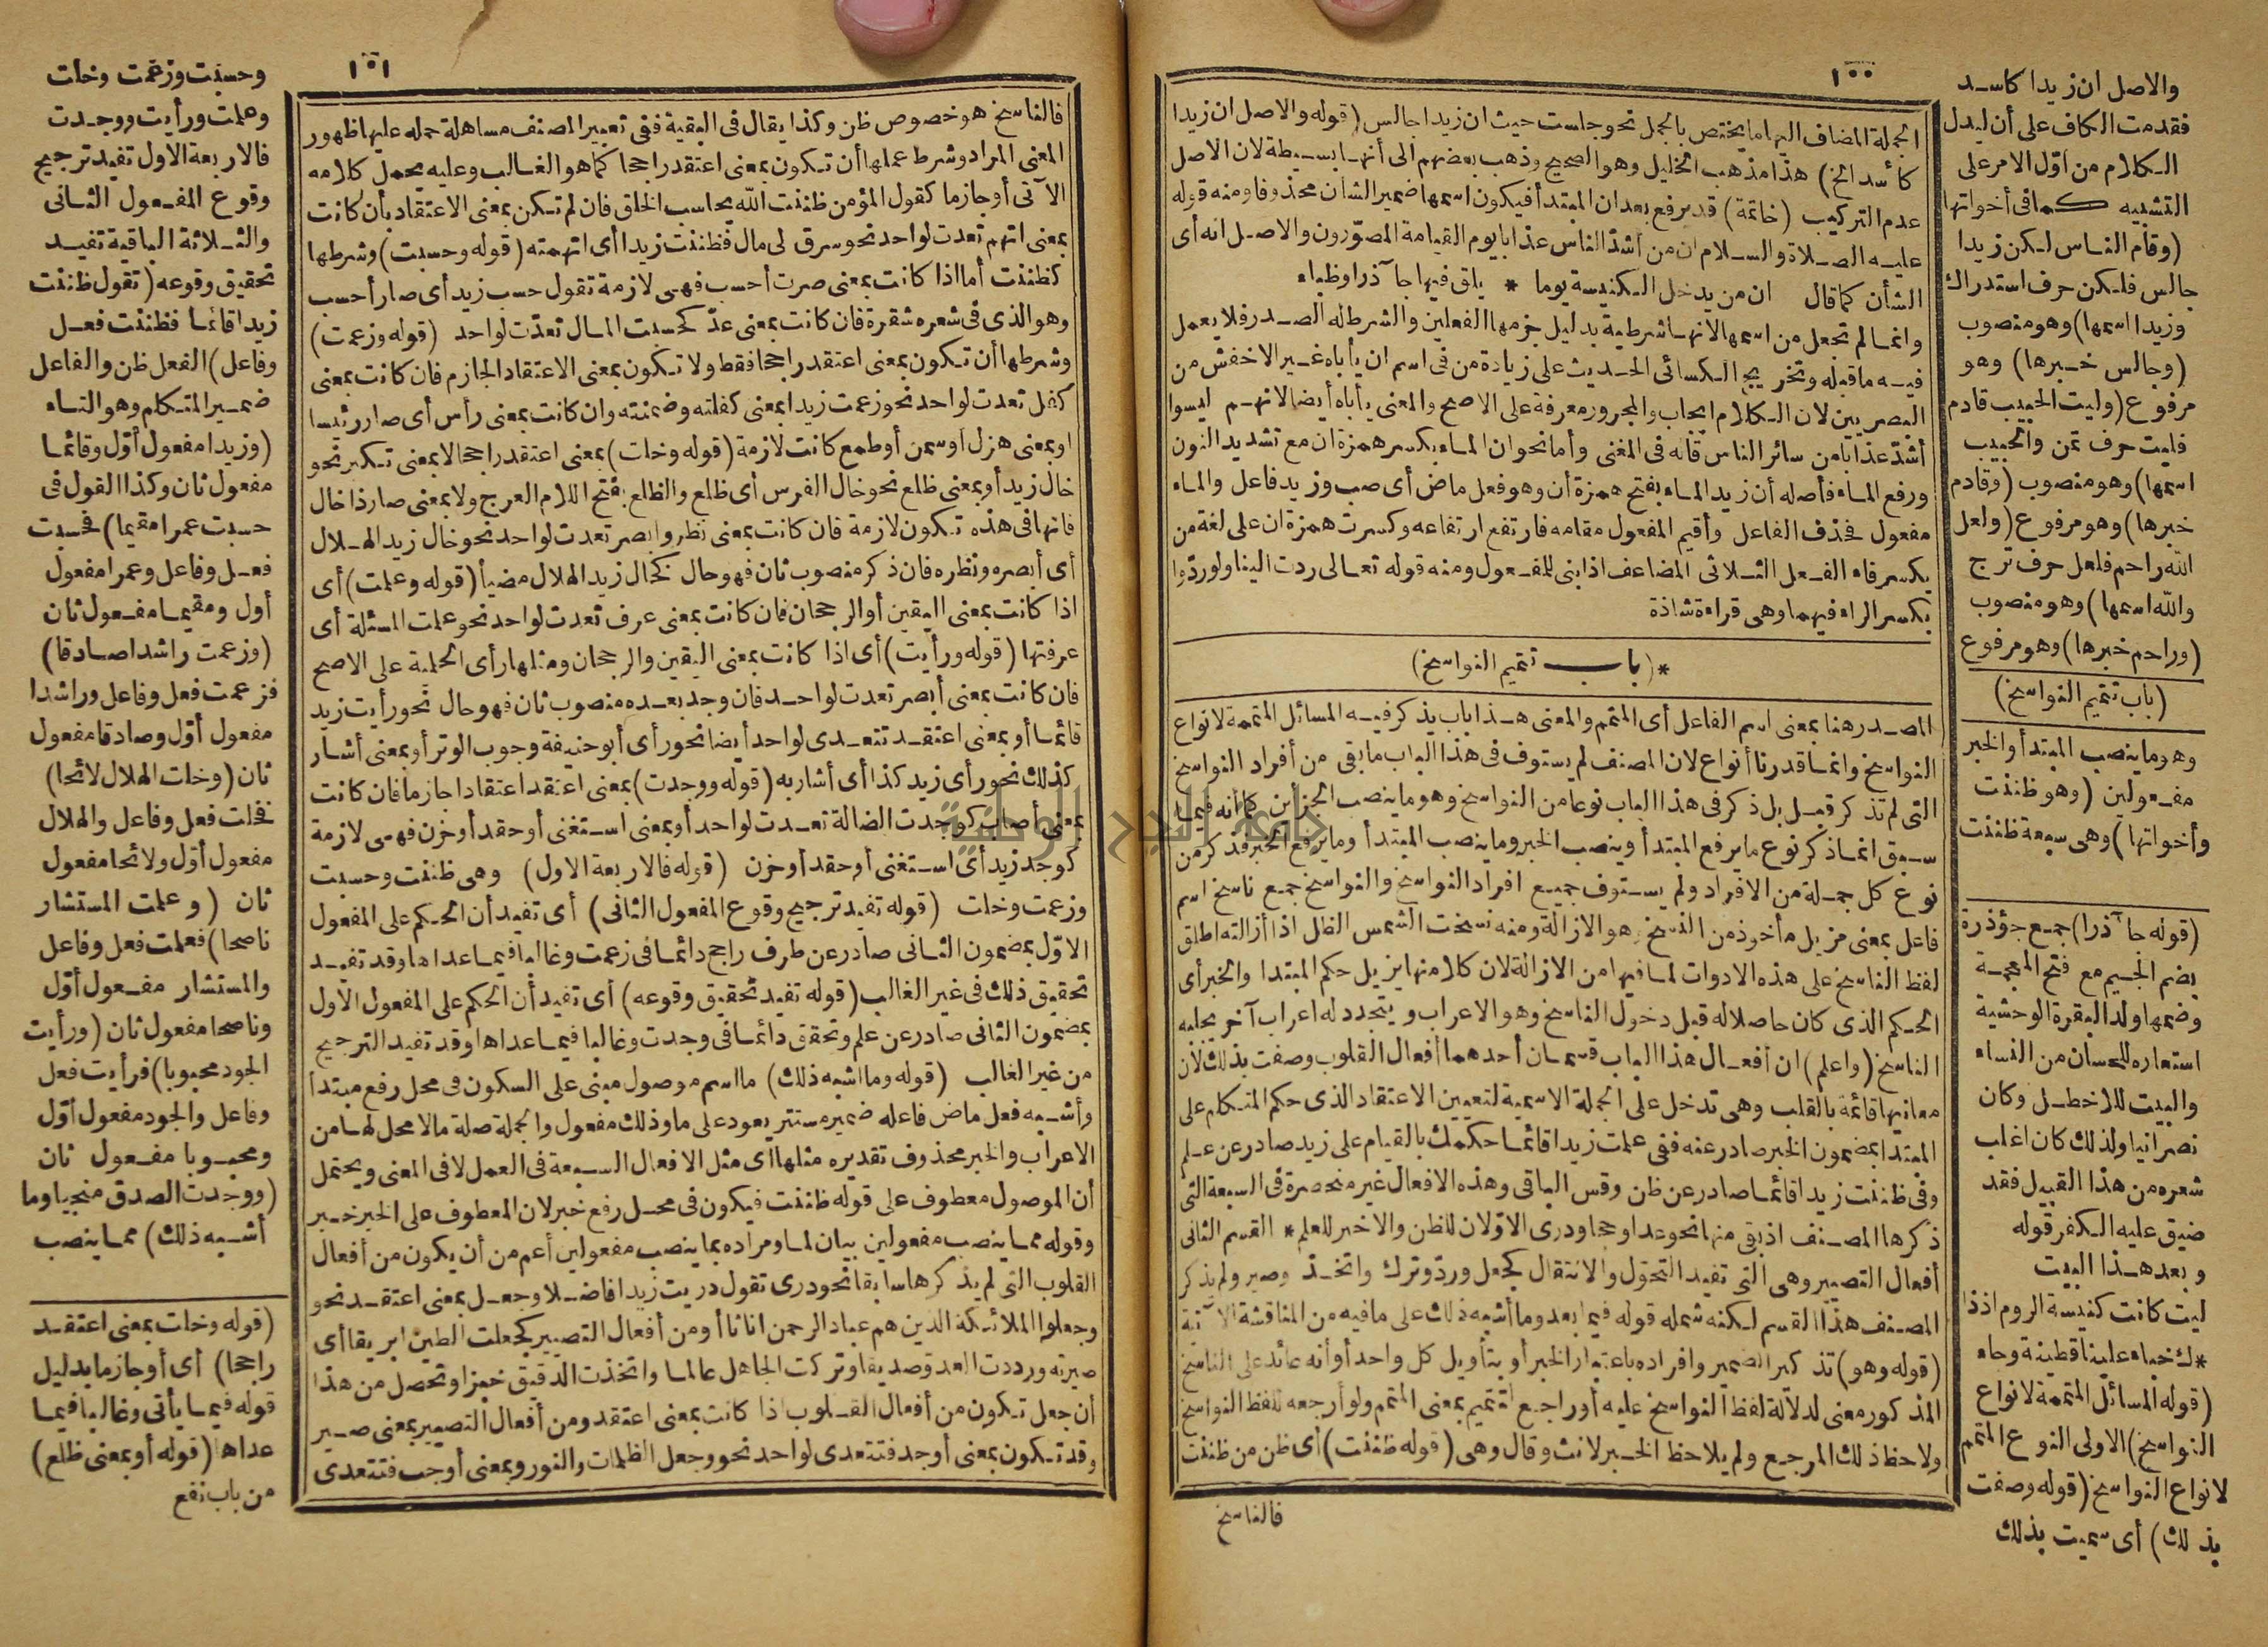 ١٠٠
الجملة المضاف اليها ما يختص بالجمل نحو جلست حيث ان زيدا جالس (قوله والاصل ان زيدا
كأسد الخ) هذا مذهب الخليل وهو الصحيح وذهب بعضهم الى أنها بسيطة لان الاصل
عدم التركيب (خاتمة) قد يرفع بعد ان المبتدأ فيكون اسمها ضمير الشأن محذوفا ومنه قوله
عليه الصلاة والسلام ان من أشدّ الناس عذابا يوم القيامة المصوّرون والاصل انه أى
الشأن كما قال ان من يدخل الكنيسة يوما * يلق فيها جآذرا وظباء
وانما لم تجعل من اسمها لانها شرطية بدليل جزمها الفعلين والشرط له الصدر فلا يعمل
فيه ما قبله وتخريج الكسائى الحديث على زيادة من فى اسم ان يأباه غير الاخفش من
البصريين لان الكلام ايجاب والمجرور معرفة على الاصح والمعنى يأباه أيضا لانهم ليسوا
أشدّ عذابا من سائر الناس قاله فى المغنى وأما نحو ان الماء بكسر همزة ان مع تشديد النون
ورفع الماء فأصله أن زيد الماء بفتح همزة أن وهو فعل ماض أى صب وزيد فاعل والماء
مفعول فحذف الفاعل وأقيم المفعول مقامه فارتفع ارتفاعه وكسرت همزة ان على لغة من
يكسر فاء الفعل الثلاثى المضاعف اذا بنى للمفعول ومنه قوله تعالى ردت الينا ولو ردّوا
بكسر الراء فيهما وهى قراءة شاذة
*(باب تتميم النواسخ)
المصدر هنا بمعنى اسم الفاعل أى المتمم والمعنى هذا باب يذكر فيه المسائل المتممة لانواع
النواسخ وانما قدرنا أنواع لان المصنف لم يستوف فى هذا الباب ما بقى من أفراد النواسخ
التى لم تذكر قبل بل ذكر فى هذا الباب نوعا من النواسخ وهو ما ينصب الجزأين كما أنه فيما
سبق انما ذكر نوع ما يرفع المبتدأ وينصب الخبر وما ينصب المبتدأ وما يرفع الخبر فذكر من
نوع كل جملة من الافراد ولم يستوف جميع افراد النواسخ والنواسخ جمع ناسخ اسم
فاعل بمعنى مزيل مأخوذ من النسخ وهو الازالة ومنه نسخت الشمس الظل اذا أزالته اطلق
لفظ الناسخ على هذه الادوات لما فيها من الازالة لان كلا منها يزيل حكم المبتدا والخبر أى
الحكم الذى كان حاصلا له قبل دخول الناسخ وهو الاعراب ويتجدد له اعراب آخر يجلبه
الناسخ (واعلم) ان أفعال هذا الباب قسمان أحدهما أفعال القلوب وصفت بذلك لأن
معانيها قائمة بالقلب وهى تدخل على الجملة الاسمية لتعيين الاعتقاد الذى حكم المتكلم على
المبتدا بمضمون الخبر صادر عنه ففى علمت زيدا قائما حكمك بالقيام على زيد صادر عن علم
وفى ظننت زيدا قائما صادر عن ظن وقس الباقى وهذه الافعال غير منحصرة فى السبعة التى
ذكرها المصنف اذ بقى منها نحو عدا وحجا ودرى الاوّلان للظن والاخير للعلم * القسم الثانى
أفعال التصيير وهى التى تفيد التحوّل والانتقال كجعل وردّ وترك واتخذ وصير ولم يذكر
المصنف هذا القسم لكنه شمله قوله فيما بعد وما أشبه ذلك على ما فيه من المناقشة الآتية
(قوله وهو) تذكير الضمير وافراده باعتبار الخبر أو بتأويل كل واحد أو أنه عائد على الناسخ
المذكور معنى لدلالة لفظ النواسخ عليه أو راجع لتتميم بمعنى المتمم ولو أرجعه للفظ النواسخ
ولاحظ ذلك المرجع ولم يلاحظ الخبر لانث وقال وهى (قوله ظننت) أى ظن من ظننت
فالناسخ
والاصل ان زيدا كاسد
فقدمت الكاف على أن ليدل
الكلام من أوّل الامر على
التشبيه كما فى أخواتها
(وقام الناس لكن زيدا
جالس فلكن حرف استدراك
وزيدا اسمها) وهو منصوب
(وجالس خبرها) وهو
مرفوع (وليت الحبيب قادم
فليت حرف تمن والحبيب
اسمها) وهو منصوب (وقادم
خبرها) وهو مرفوع (ولعل
الله راحم فلعل حرف ترج
والله اسمها) وهو منصوب
(وراحم خبرها) وهو مرفوع
(باب تتميم النواسخ)
وهو ما ينصب المبتدأ والخبر
مفعولين (وهو ظننت
وأخواتها) وهى سبعة ظننت
(قوله جآذرا) جمع جؤذرة
بضم الجيم مع فتح المعجمة
وضمها ولد البقرة الوحشية
استعاره للحسان من النساء
والبيت للاخطل وكان
نصرانيا ولذلك كان اغلب
شعره من هذا القبيل فقد
ضيق عليه الكفر قوله
وبعد هذا البيت
ليت كانت كنيسة الروم اذذا
*ك خباء علينا قطينة وحاء
(قوله المسائل المتممة لانواع
النواسخ) الاولى النوع المتمم
لانواع النواسخ (قوله وصفت
بذلك) أى سميت بذلك
١٠١
فالناسخ هو خصوص ظن وكذا يقال فى البقية ففى تعبير المصنف مساهلة حمله عليها ظهور
المعنى المراد وشرط عملها أن تكون بمعنى اعتقد راجحا كما هو الغالب وعليه يحمل كلامه
الآتى أو جازما كقول المؤمن ظننت الله يحاسب الخلق فان لم تكن بمعنى الاعتقاد بأن كانت
بمعنى اتهم تعدت لواحد نحو سرق لى مال فظننت زيدا أى اتهمته (قوله وحسبت) وشرطها
كظننت أما اذا كانت بمعنى صرت أحسب فهى لازمة تقول حسب زيد أى صار أحسب
وهو الذى فى شعره شقرة فان كانت بمعنى عدّ كحسبت المال تعدّت لواحد (قوله وزعمت)
وشرطها أن تكون بمعنى اعتقد راجحا فقط ولا تكون بمعنى الاعتقاد الجازم فان كانت بمعنى
كفل تعدت لواحد نحو زعمت زيدا بمعنى كفلته وضمنته وان كانت بمعنى رأس أى صار رئيسا
او بمعنى هزل أو سمن أو طمع كانت لازمة (قوله وخلت) بمعنى اعتقد راجحا لا بمعنى تكبر نحو
خال زيد أو بمعنى ظلع نحو خال الفرس أى ظلع والظلع بفتح اللام العرج ولا بمعنى صار ذا خال
فانها فى هذه تكون لازمة فان كانت بمعنى نظر وابصر تعدت لواحد نحو خال زيد الهلال
أى أبصره ونظره فان ذكر منصوب ثان فهو حال كخال زيد الهلال مضيأ (قوله وعلمت) أى
اذا كانت بمعنى اليقين أو الرجحان فان كانت بمعنى عرف تعدت لواحد نحو علمت المسئلة أى
عرفتها (قوله ورأيت) أى اذا كانت بمعنى اليقين والرجحان ومثلها رأى الحلمية على الاصح
فان كانت بمعنى أبصر تعدت لواحد فان وجد بعده منصوب ثان فهو حال نحو رأيت زيد
قائما أو بمعنى اعتقد تتعدى لواحد أيضا نحو رأى أبو حنيفة وجوب الوتر أو بمعنى أشار
كذلك نحو رأى زيد كذا أى أشار به (قوله ووجدت) بمعنى اعتقد اعتقادا جازما فان كانت
بمعنى أصاب كوجدت الضالة تعدت لواحد أو بمعنى استغنى أو حقد أو حزن فهى لازمة
كوجد زيد أى استغنى أو حقد أو حزن (قوله فالاربعة الاول) وهى ظننت وحسبت
وزعمت وخلت (قوله تفيد ترجيح وقوع المفعول الثانى) أى تفيد أن الحكم على المفعول
الاوّل بمضمون الثانى صادر عن طرف راجح دائما فى زعمت وغالبا فيما عداها وقد تفيد
تحقيق ذلك فى غير الغالب (قوله تفيد تحقيق وقوعه) أى تفيد أن الحكم على المفعول الأول
بمضمون الثانى صادر عن علم وتحقق دائما فى وجدت وغالبا فيما عداها وقد تفيد الترجيح
من غير الغالب (قوله وما اشبه ذلك) ما اسم موصول مبنى على السكون فى محل رفع مبتدأ
وأشبه فعل ماض فاعله ضمير مستتر يعود على ما وذلك مفعول والجملة صلة ما لا محل لها من
الاعراب والخبر محذوف تقديره مثلها اى مثل الافعال السبعة فى العمل لا فى المعنى ويحتمل
أن الموصول معطوف على قوله ظننت فيكون فى محل رفع خبر لان المعطوف على الخبر خبر
وقوله مما ينصب مفعولين بيان لما ومراده بما ينصب مفعولين أعم من أن يكون من أفعال
القلوب التى لم يذكرها سابقا نحو درى تقول دريت زيدا فاضلا وجعل بمعنى اعتقد نحو
وجعلوا الملائكة الذين هم عباد الرحمن اناثا أو من أفعال التصيير كجعلت الطين ابريقا أى
صيرته ورددت العدو صديقا وتركت الجاهل عالما واتخذت الدقيق خبزا وتحصل من هذا
أن جعل تكون من أفعال القلوب اذا كانت بمعنى اعتقد ومن أفعال التصيير بمعنى صير
وقد تكون بمعنى أوجد فتتعدى لواحد نحو وجعل الظلمات والنور وبمعنى أوجب فتتعدى
وحسبت وزعمت وخلت
وعلمت ورأيت ووجدت
فالاربعة الاول تفيد ترجيح
وقوع المفعول الثانى
والثلاثة الباقية تفيد
تحقيق وقوعه (تقول ظننت
زيدا قائما فظننت فعل
وفاعل) الفعل ظن والفاعل
ضمير المتكلم وهو التاء
(وزيدا مفعول أوّل وقائما
مفعول ثان وكذا القول فى
حسبت عمرا مقيما) فحسبت
فعل وفاعل وعمرا مفعول
أول ومقيما مفعول ثان
(وزعمت راشدا صادقا)
فزعمت فعل وفاعل وراشدا
مفعول أوّل وصادقا مفعول
ثان (وخلت الهلال لائحا)
فخلت فعل وفاعل والهلال
مفعول أوّل ولائحا مفعول
ثان (وعلمت المستشار
ناصحا) فعلمت فعل وفاعل
والمستشار مفعول أوّل
وناصحا مفعول ثان (ورأيت
الجود محبوبا) فرأيت فعل
وفاعل والجود مفعول أوّل
ومحبوبا مفعول ثان
(ووجدت الصدق منجيا وما
أشبه ذلك) مما ينصب
(قوله وخلت بمعنى اعتقد
راجحا) أى أو جازما بدليل
قوله فيما يأتى وغالبا فيما
عداها (قوله أو بمعنى ظلع)
من باب نفع
جامعة النجاح الوطنية